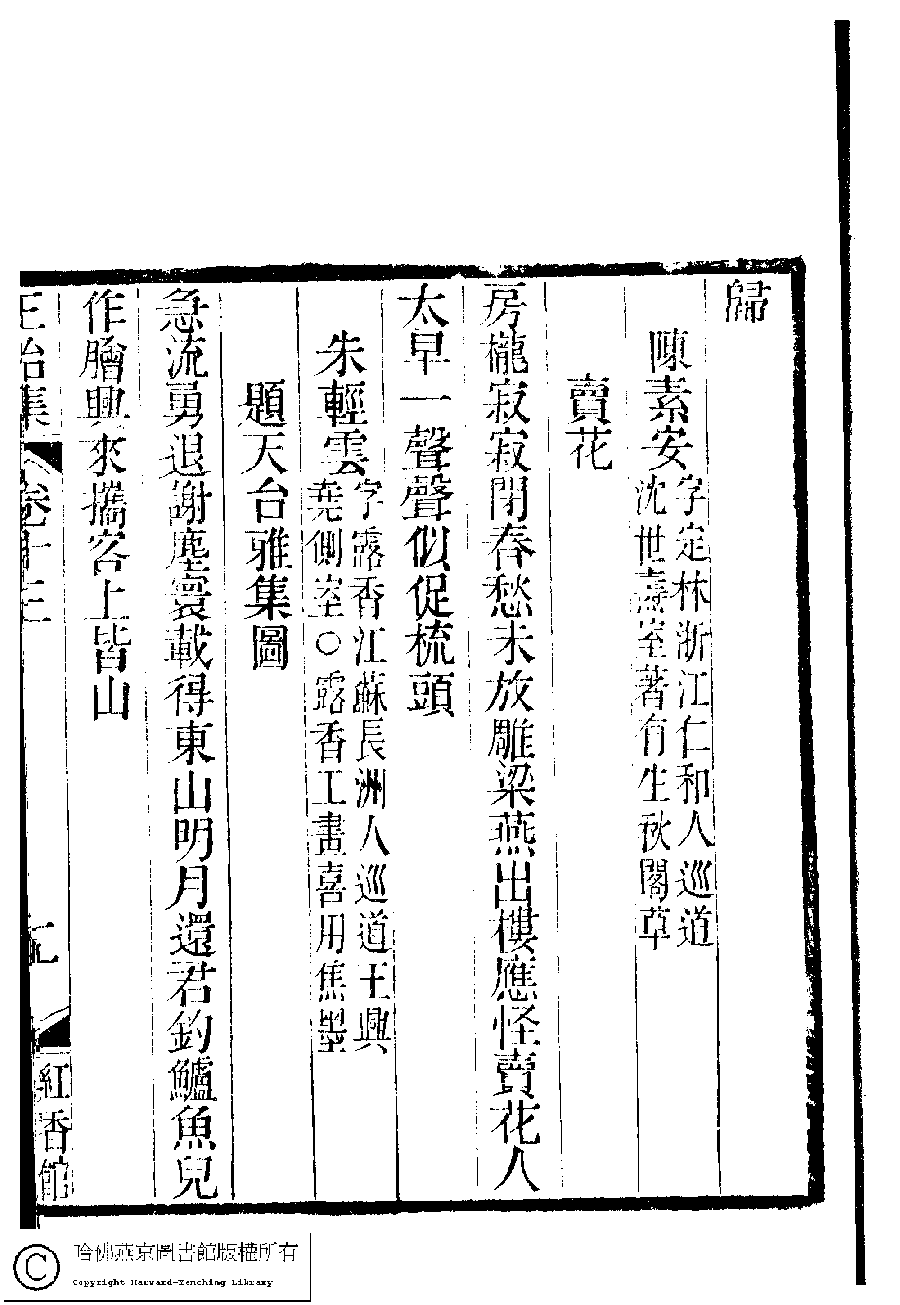 歸
陳素安字定林浙江仁和人巡道
沈世燾室著有生秋閣草
賣花
房櫳寂寂閉春愁未放雕梁燕出樓應怪賣花人
太早一聲聲似促梳頭
朱輕雲字露香江蘇長洲人巡道王興
堯側室○露香工畫喜用焦墨
題天台雅集圖
急流勇退謝塵寰載得東山明月還君釣鱸魚兒
作膾興來攜客上皆山
正始集 卷十三 紅香館
哈佛燕京圖書館版權所有
Copyright Harvard-Yenching Library